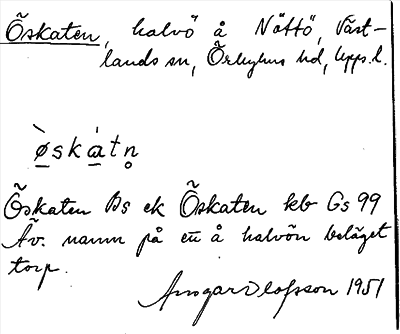 Öskaten, halvö å Nöttö, Väst-
lands sn, Örbyhus hd, Upps.l.
øskatn
Öskaten Bs ek Öskaten kb Gs 99
Äv. namn på en å halvön beläget
torp.
Ansgar Olofsson 1951